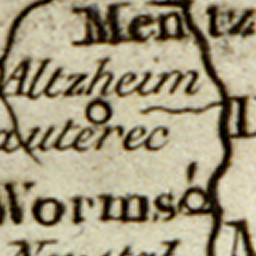 Mentz
Altzheim
auterec
Worms